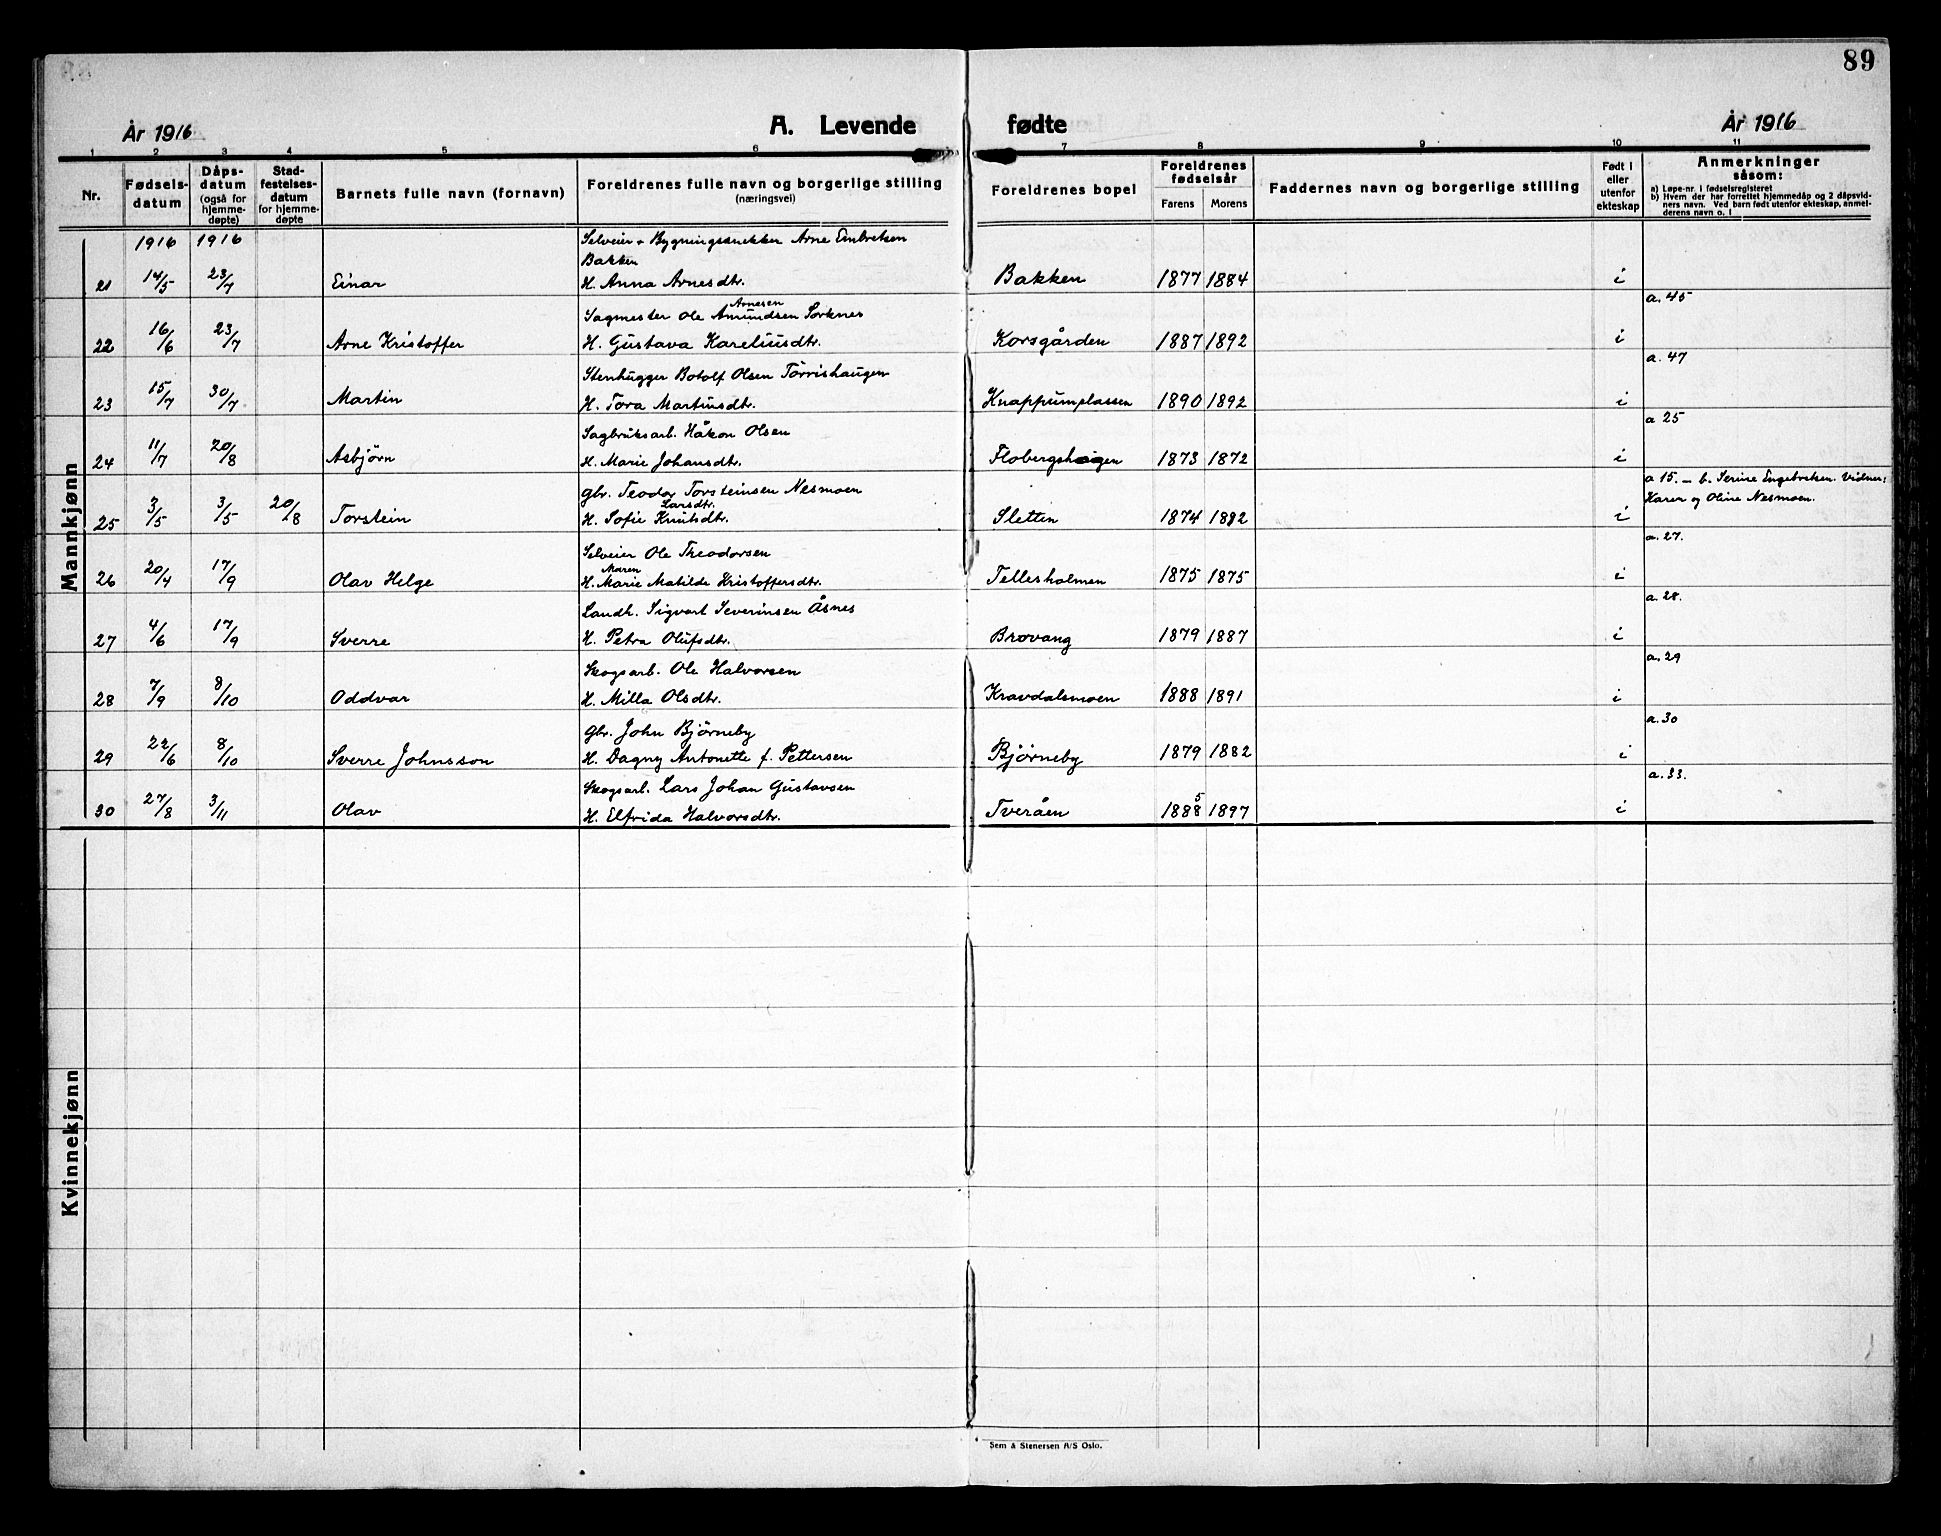 89
År 1916 A. Levende fødte År 1916
1 2 3 4 5 6 7 8 9 10 11
Nr. Fødselsdatum Dåpsdatum (også for hjemmedøpte) Stadfestelsesdatum for hjemmedøpte Barnets fulle navn (fornavn) Foreldrenes fulle navn og borgerlige stilling (næringsvei) Foreldrenes bopel Foreldrenes fødselsår Farens Morens Faddernes navn og borgerlige stilling Født i eller utenfor ekteskap Anmerkninger såsom:
a) Løpe-nr. i fødselsregisteret
b) Hvem der har forrettet hjemmedåp og 2 dåpsvidners navn. Ved barn født utenfor ekteskap, anmelderens navn o. l
Mannkjønn
1916 1916 Selveier + Bygningssnekker Arne Embretsen
Bakken
21 14/5 23/7 Einar H. Anna Arnesdtr. Bakken 1877 1884 i
Arnesen a. 45
Sagmester Ole Amundsen Sorknes
22 16/6 23/7 Arne Kristoffer H. Gustava Kareliusdtr. Korsgården 1887 1892 i
a. 47
Stenhugger Botolf Olsen Torrishaugen
23 15/7 30/7 Martin H. Tora Martinsdtr. Knappumplassen 1890 1892 i
a 25
Sagbruksarb. Håkon Olsen
24 11/7 20/8 Asbjörn H. Marie Johansdtr. Flobergshagen 1873 1872 i
a 15. – b. Serine Engebretsen. Vidner:
Gbr. Teodor Torsteinsen Nesmoen Karen og Oline Nesmoen.
Larsdtr.
25 3/5 3/5 20/8 Torstein H. Sofie Knutsdtr. Sletten 1874 1882 i
a. 27.
Selveier Ole Theodorsen
Maren
26 20/4 17/9 Olav Helge H. Marie Matilde Kristoffersdtr. Tellesholmen 1875 1875 i
a. 28.
Landh. Sigvart Severinsen Åsnes
27 4/6 17/9 Sverre H. Petra Olufsdtr. Brovang 1879 1887 i
a. 29
Skogsarb. Ole Halvorsen
28 7/9 8/10 Oddvar H. Milla Olsdtr. Kravdalsmoen 1888 1891 i
a. 30
Gbr. John Bjørneby
29 22/6 8/10 Sverre Johnsson H. Dagny Antonette f. Pettersen Bjørneby 1879 1882 i
a. 33.
Skogsarb. Lars Johan Gustavsen
5
30 27/8 3/11 Olav H. Elfrida Halvorsdtr. Tveråen 1888 1897 i
Kvinnekjønn
Sem & Stenersen A/S Oslo.